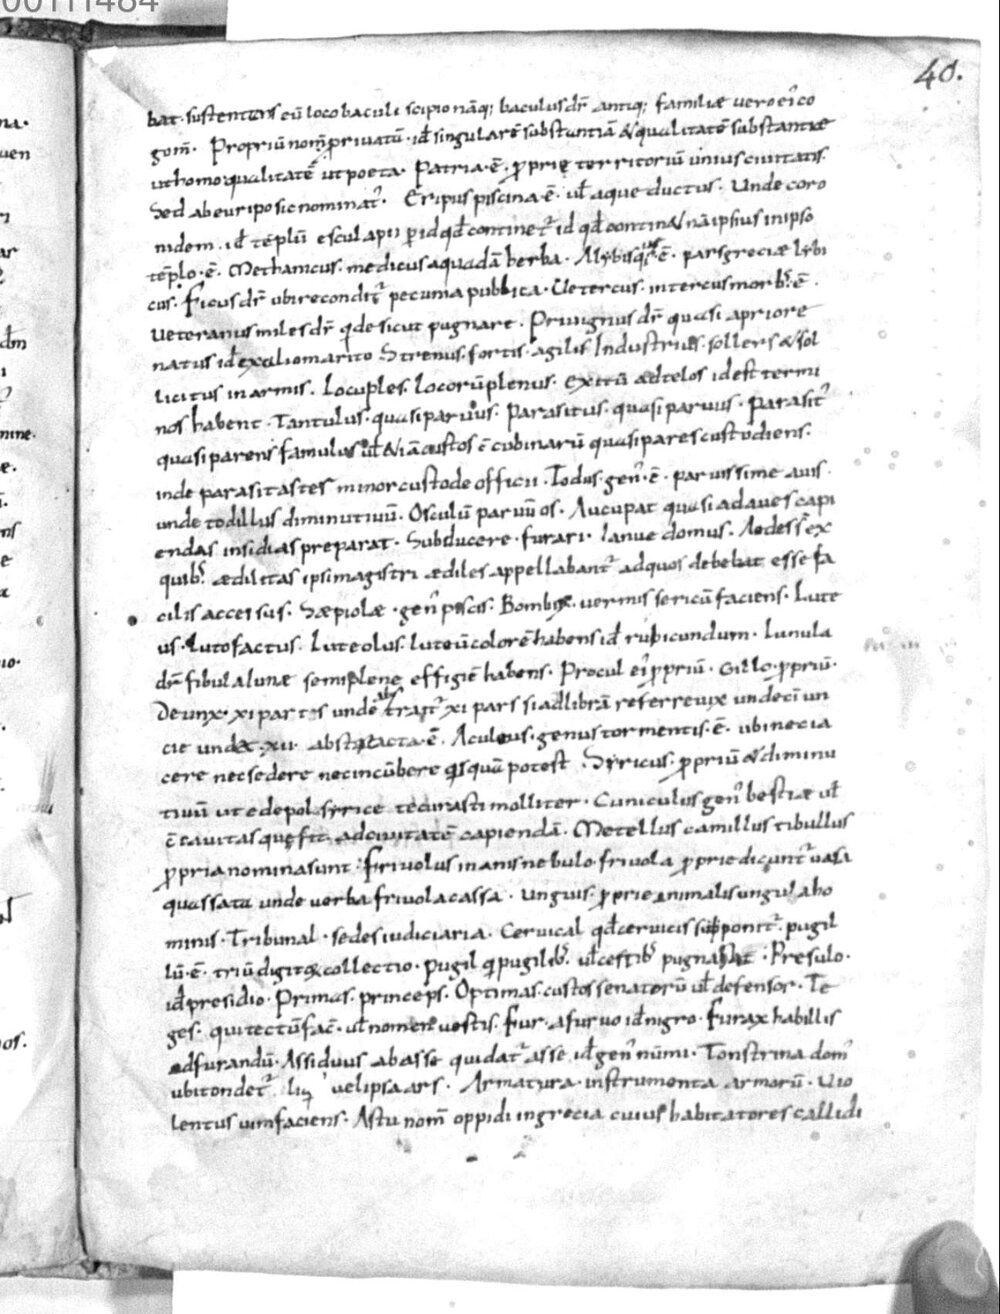 40.
bat. sustentans eū loco baculi scipio nāq; baculus dr̄ antiq; familiæ uero ei co
gom̄. Propriū nom̄ priuatū. id singularē substantiā & qualitatē substantiæ
ut homo qualitatē ut poeta. Patria. ē. proprie territoriū unius ciuitatis.
Sed ab euripo sic nominat̄. Eripus piscina. ē. ul̄ aque ductus. Unde coro
nidem. id tēplū esculapii p id qd̄ continet̄ id qd̄ contin& nā ipsius in ipso
tēplo. ē. Methanicus. medicus a quadā herba. ē. pars greciæ lybi
cus. Ficus dr̄ ubi reconditt̄ pecunia publica. Uetercus. intercus morb; ē.
Ueteranus miles dr̄ qͥ desicut pugnare. Priuignus dr̄ quasi a priore
natus id ex alio marito Strenus. fortis. agilis Industrius. sollers & sol
licitus in armis. Locuples. locorū plenus. exitū ad telos id est termi
nos habent. Tantulus. quasi paruus. Parasitus. quasi paruus. Parasit̄
quasi parens famulus ul̄ &iā custos cubinarū quasi pares custodiens.
inde parasitastes minor custode officii. Todus. gen̄. ē. paruissime auis.
unde todillus diminutiuū. Osculū paruū os. Aucupat quasi ad aues capi
endas insidias preparat. Subducere. furari. Ianue domus. Aedes ex
quib; ædilitas ipsi magistri ædiles appellabant̄ ad quos debebat esse fa
cilis accessus. Sæpiolæ. gen̄ piscis. Bombix. uermis sericū faciens. Lute
us. luto factus. Luteolus. luteū colorē habens id rubicundum. Lunula
dr̄ fibula lunæ semiplene effigiē habens. Procul ei ppriū. Gillo. ppriū.
Deunx. xi partes unde abstrahit̄ xi pars si ad librā referre uix undeci un
cie undec. xii abstracta. ē. Aculeus. genus tormentis. ē. ubi nec ia
cere nec sedere nec incūbere quisquā potest. Syricus. ppriū & diminu
tiuū ut edepol syrice te curasti molliter. Cuniculus gen̄ bestiæ ul̄
cauitas que fit ad ciuitatē capiendā. Metellus camillus tibullus
ppria nomina sunt. Friuolus inanis nebulo. friuola pprie dicunt̄ uasa
quassata unde uerba friuola cassa. Unguis. pprie animalis ungula ho
minis. Tribunal. sedes iudiciaria. Ceruical qd̄ ceruicis supponit̄. pugil
lū. ē. triū digitoꝝ collectio. Pugil qͥ pugilib; ul̄ cestib; pugnabat. Presulo.
id presidio. Primas. princeps. Optimas. custos senatorū ul̄ defensor. Te
ges. qui tectū fac̄. ul̄ nomen uestis. Fur. a furuo id nigro. Furax habillis
ad furandū. Assiduus ab asse qui dat̄ asse id gen̄ nūmi. Tonstrina dom̄
ubi tondet̄ uel ipsa ars. Armatura. instrumenta armorū. Uio
lentus uim faciens. Astu nom̄ oppidi in grecia cuius habitatores callidi